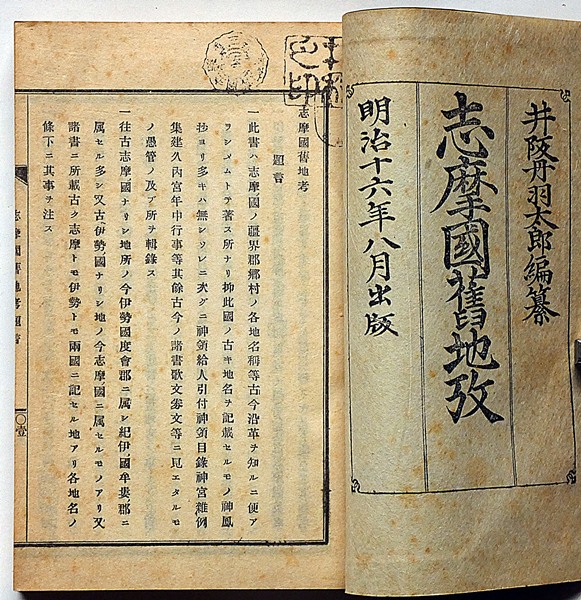 井阪丹羽太郎編纂
志摩國舊地攷
明治十六年八月出版
志摩國舊地考
題言
一此書ハ志摩國ノ疆界郡鄕村ノ各地名稱等古今沿革ヲ知ルニ便ア
ラシメムトテ著ス所ナリ抑此國ノ古キ地名ヲ記載セルモノ神鳳
抄ヨリ多キハ無シソレニ次グニ神領給人引付神領目錄神宮雜例
集建久內宮年中行事等其餘古今ノ諸書歌文劵文等ニ見エタルモ
ノ愚管ノ及ブ所ヲ輯錄ス
一往古志摩國ナリシ地所ノ今伊勢國度會郡ニ属シ紀伊國牟婁郡ニ
属セル多シ又古伊勢國ナリシ地ノ今志摩國ニ属セルモノアリ又
諸書ニ所載古ク志摩トモ伊勢トモ兩國ニ記セル地アリ各地名ノ
條下ニ其事ヲ注ス
志摩國舊地考題言
○壹